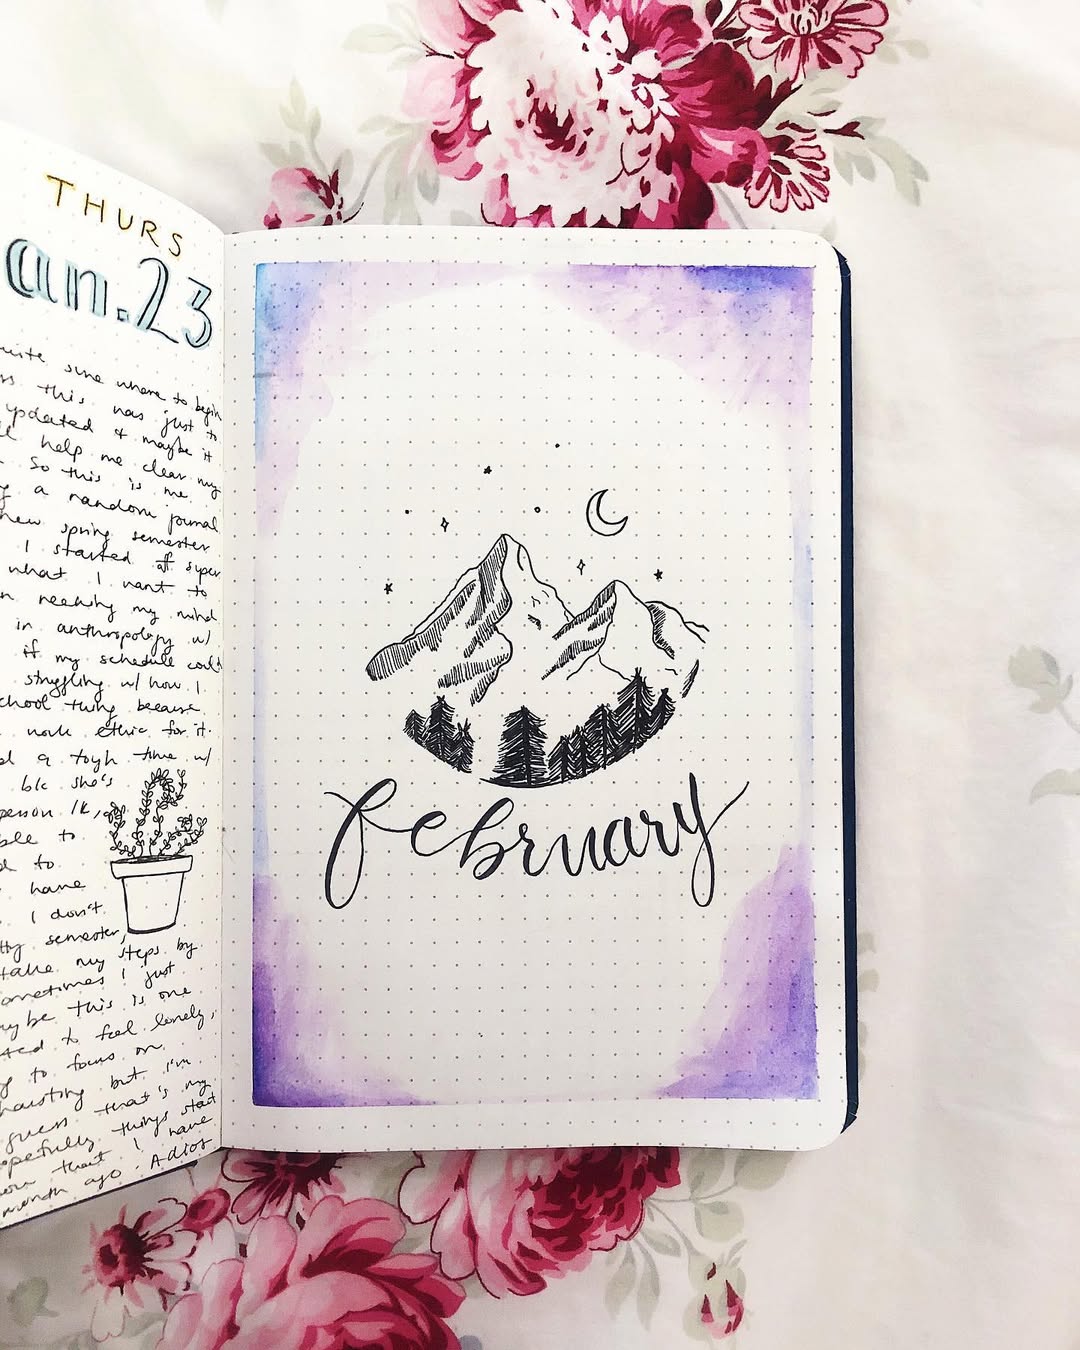 THURS
an.23
quite sure where to begin
this was just to
updated & maybe it
help me clear my
So this is me
a random journal
new spring semester
I started off super
what I want to
my mind
in anthropology w/
if my schedule could
struggling w/ how I
school thing because
work ethic for it.
a tough time w/
b/c she's
person lk,
ble to
to
have
I don't
semester,
take my steps by
sometimes I just
maybe this is one
to feel lonely,
to focus on
hausting but I'm
guess that's my
opefully things start
that I have
month ago. Adios
February